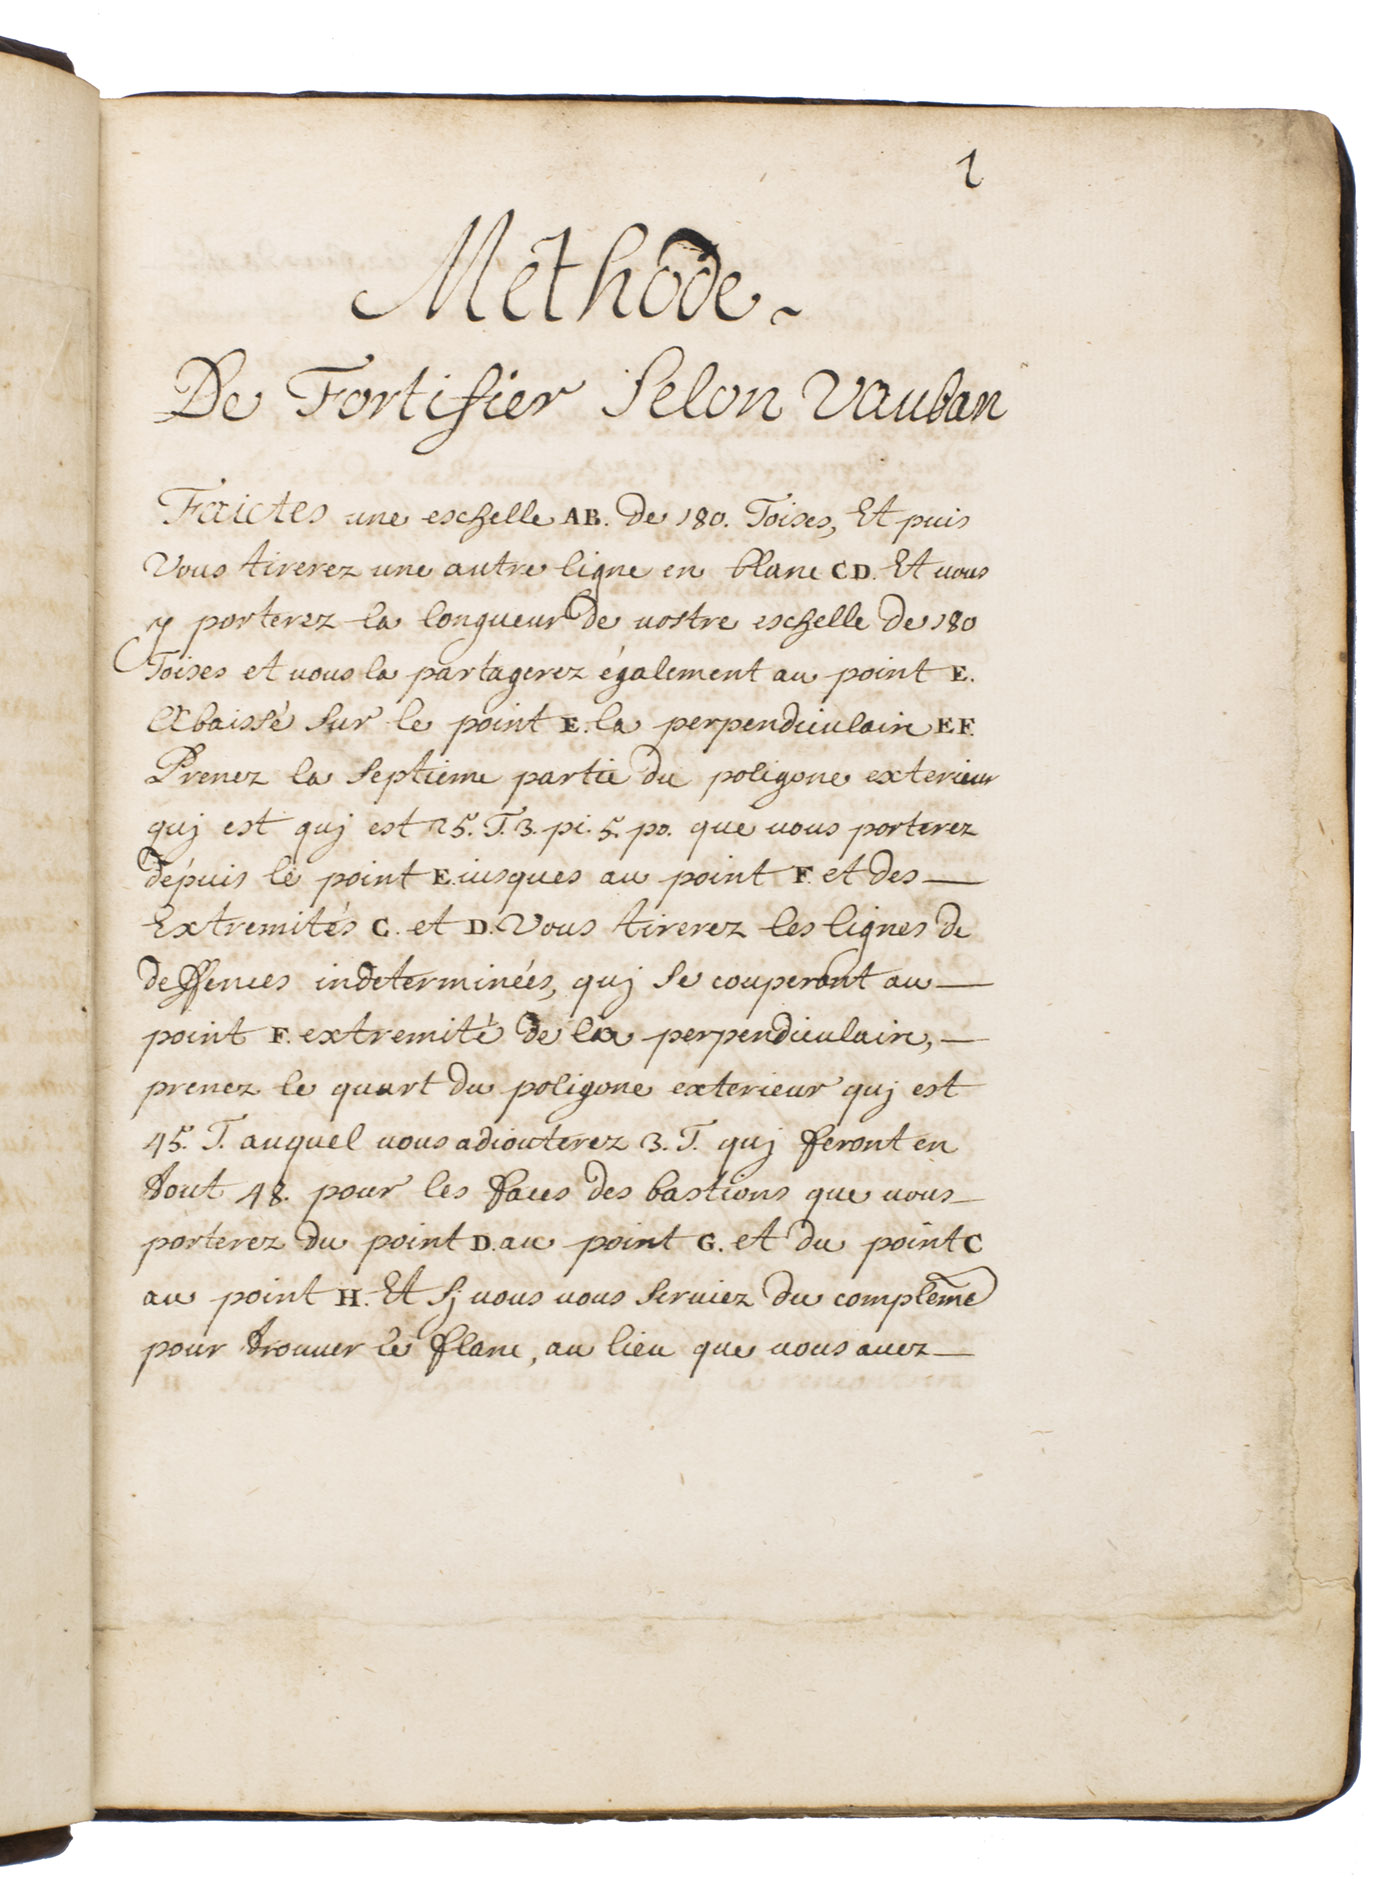 1
Methode
De Fortifier Selon Vauban
Faictes une eschelle AB. de 180. Toises, Et puis
Vous tirerez une autre ligne en blanc CD. Et vous
y porterez la longueur de vostre eschelle de 180
Toises et vous la partagerez également au point E.
Abaissé sur le point E. la perpendiculaire EF.
Prenez la septieme partie du poligone exterieur
quj est quj est 25. T. 3. pi. 5. po. que vous porterez
dépuis le point E. iusques au point F. et des —
Extremités C. et D. Vous tirerez les lignes de
deffences indeterminées, quj se couperont au —
point F. extremité de la perpendiculaire, —
prenez le quart du poligone exterieur quj est
45. T. auquel vous adiouterez 3. T. quj feront en
tout 48. pour les faces des bastions que vous —
porterez du point D. au point G. et du point C
au point H. Et sj vous vous serviez du compleme
pour trouver le flanc, au lieu que vous avez —